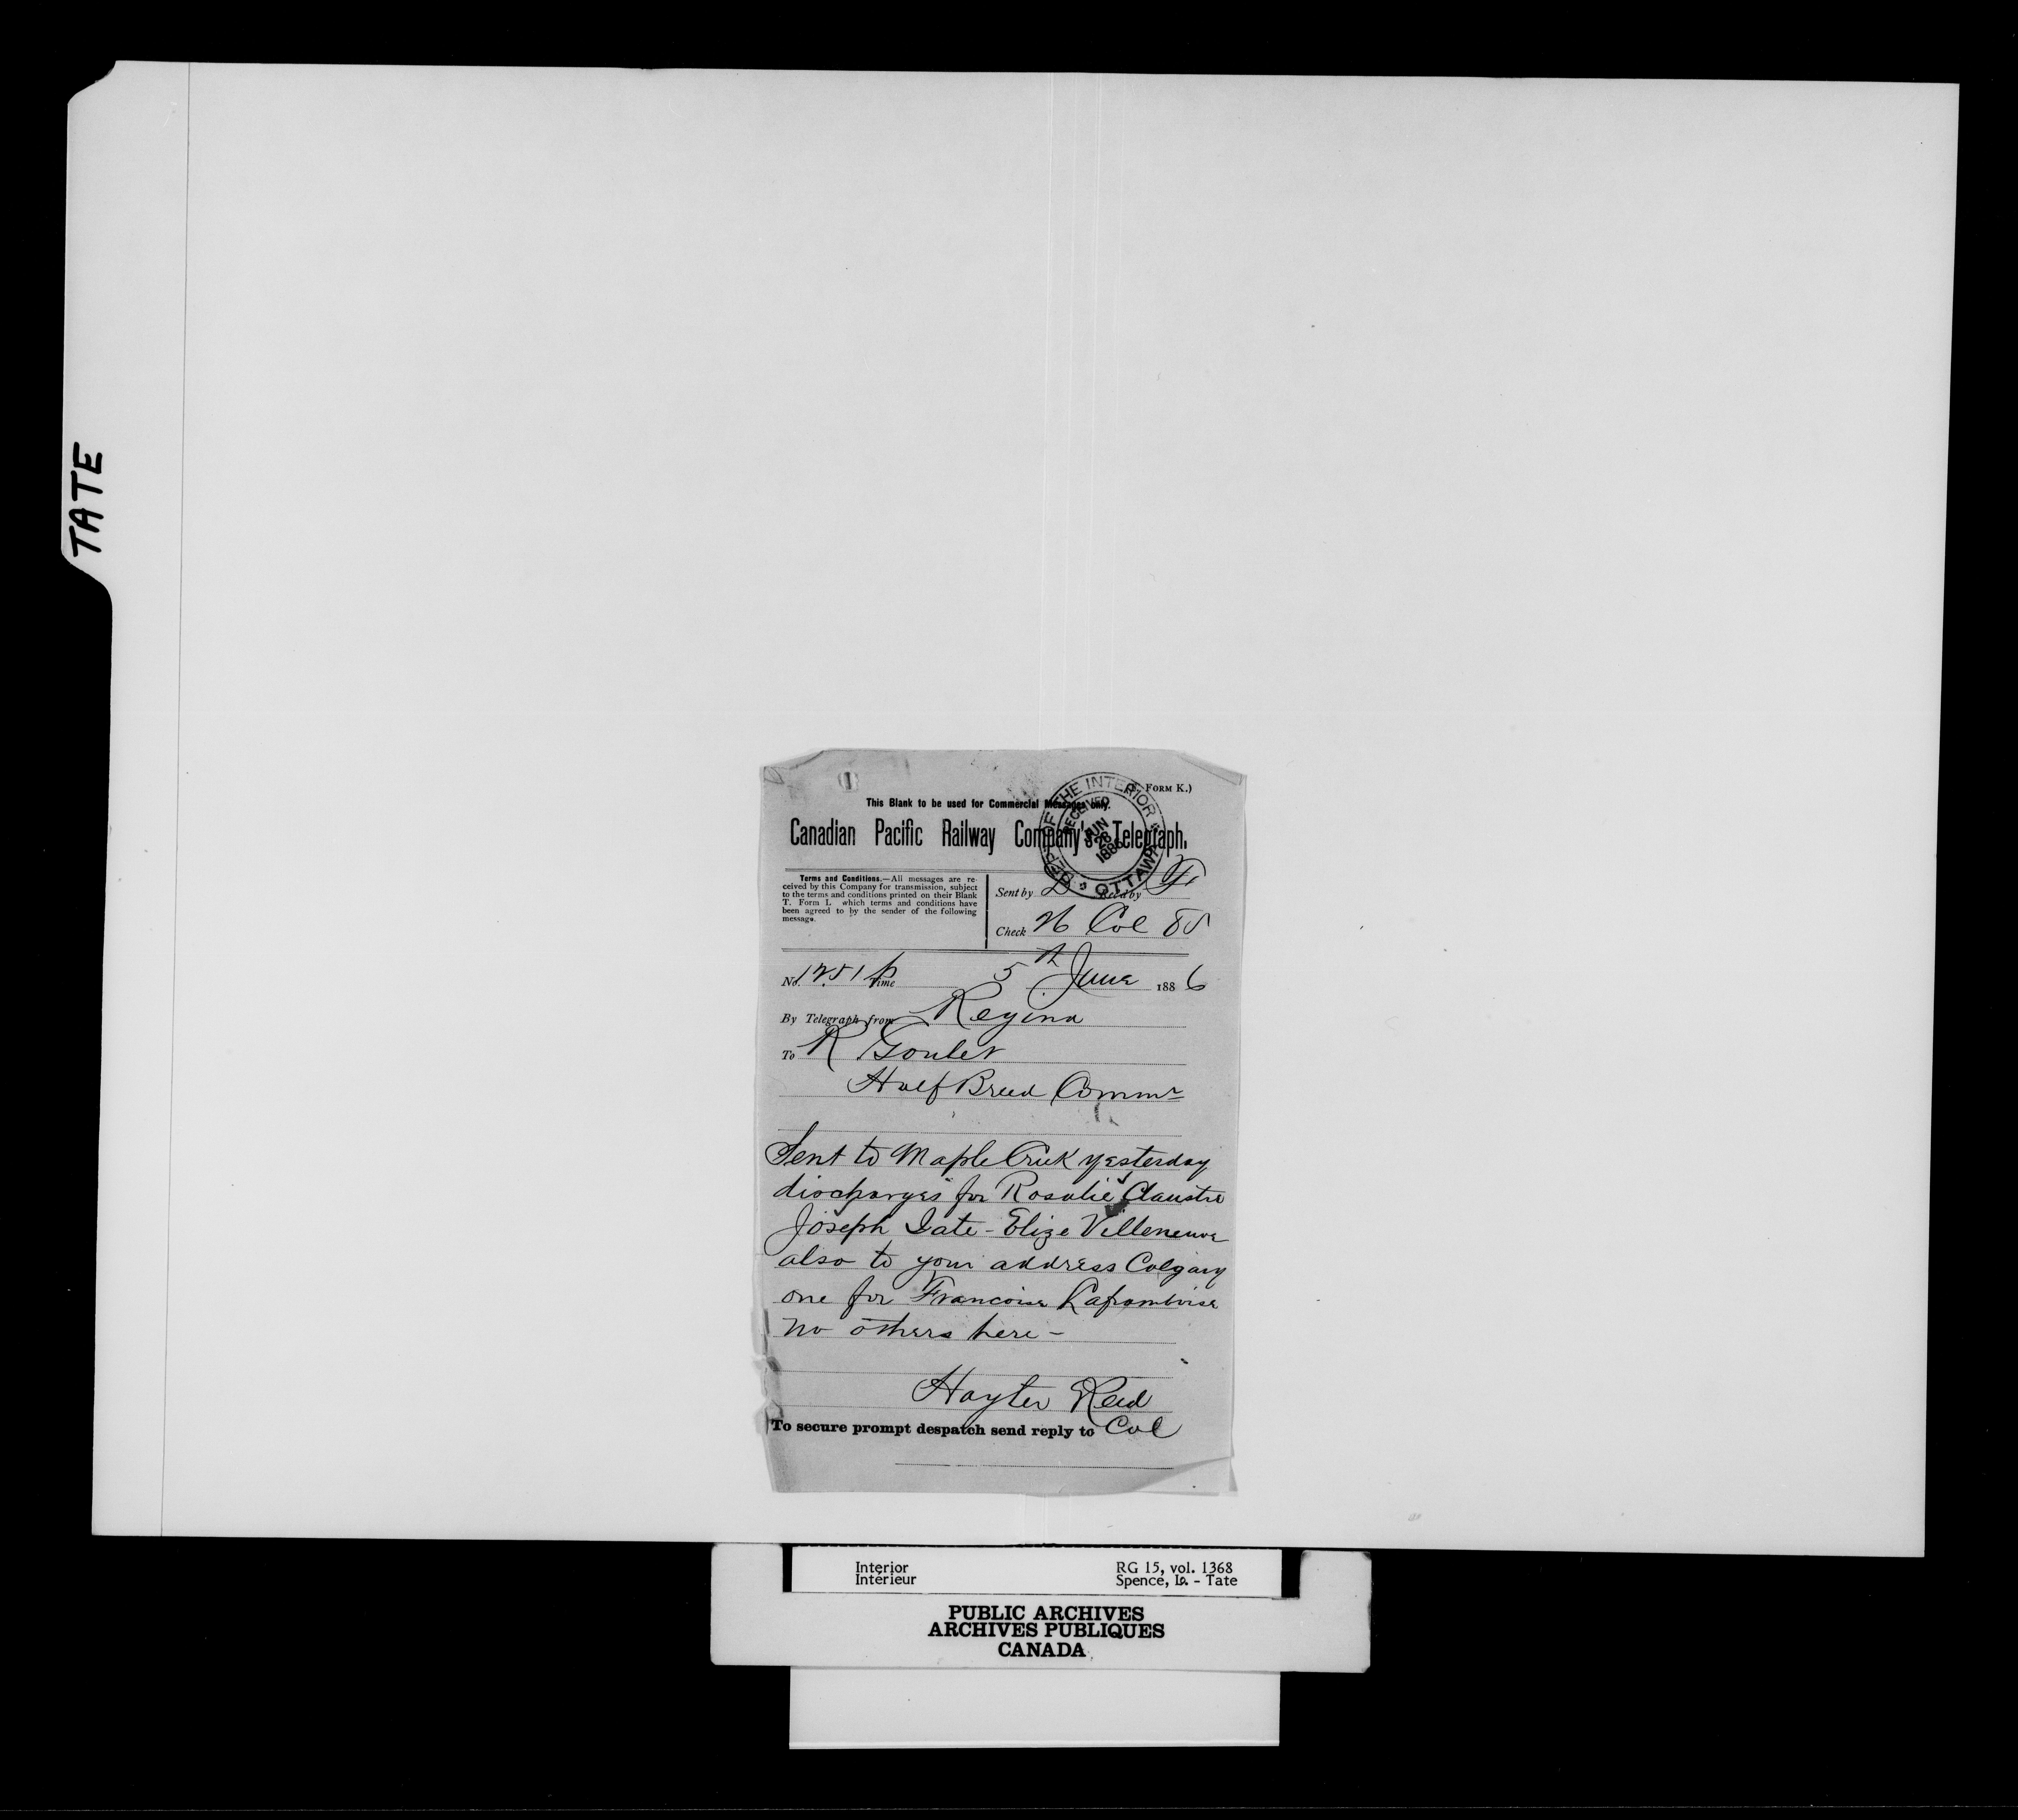 TATE
(T. FORM K.)
This Blank to be used for Commercial Messages only.
Canadian Pacific Railway Company's Telegraph.
DEPT OF THE INTERIOR
RECEIVED
JUN
28
1886
OTTAWA
Terms and Conditions.—All messages are re-
ceived by this Company for transmission, subject
to the terms and conditions printed on their Blank
T. Form I. which terms and conditions have
been agreed to by the sender of the following
message.
Sent by Rec'd by
Check 26 Col
No. 1251 p Time 5th June 1886
By Telegraph from Regina
To R Goulet
Half Breed Commr
Sent to Maple Creek yesterday
discharges for Rosalie Claustre
Joseph Tate - Elize Villeneuve
also to your address Calgary
one for Francoise Laframboise
no others here -
Hayter Reed
To secure prompt despatch send reply to Col
Interior RG 15, vol. 1368
Intérieur Spence, Lo. - Tate
PUBLIC ARCHIVES
ARCHIVES PUBLIQUES
CANADA